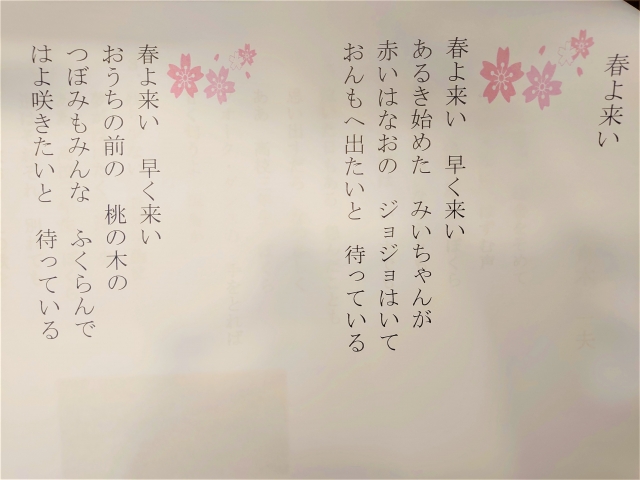 春よ来い
春よ来い　早く来い
あるき始めた　みいちゃんが
赤いはなおの　ジョジョはいて
おんもへ出たいと　待っている
春よ来い　早く来い
おうちの前の　桃の木の
つぼみもみんな　ふくらんで
はよ咲きたいと　待っている